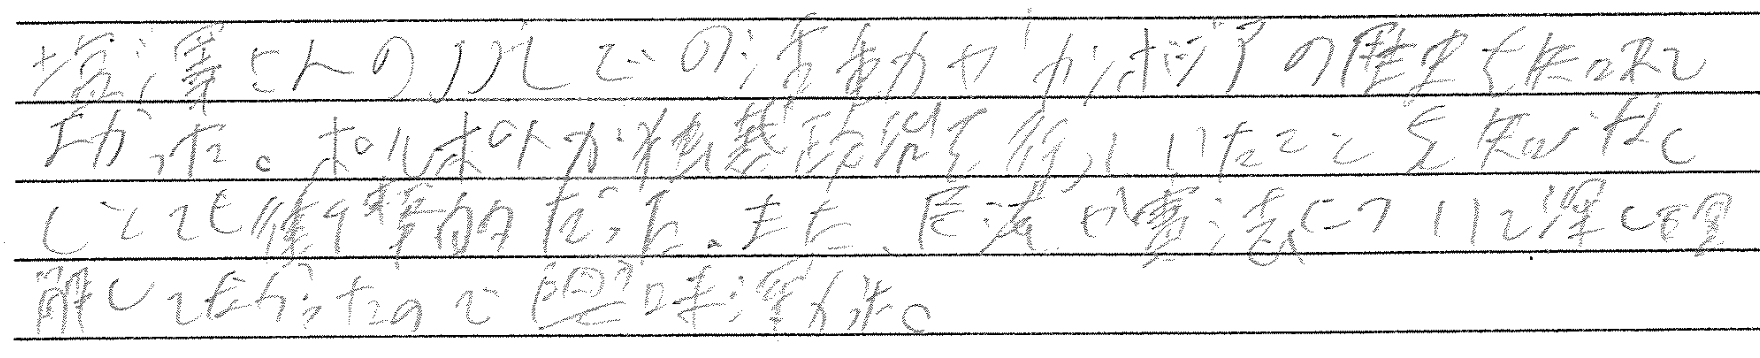 塩澤さんのJVCでの活動やカンボジアの歴史を知れて
助かった。ポルポトが独裁政治を行っていたことを知
してとても衝撃的だった。また、民法や憲法について深く理
解してなかったので興味深かった。